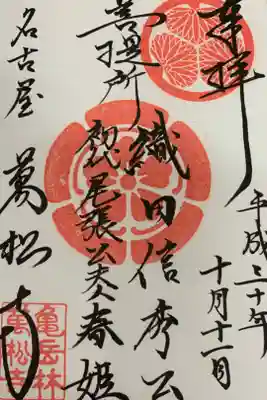 奉拝
平成三十年
十月十一日
織田信秀公
初代尾張公夫人春姫
菩提所
名古屋
萬松寺
亀岳林
萬松寺